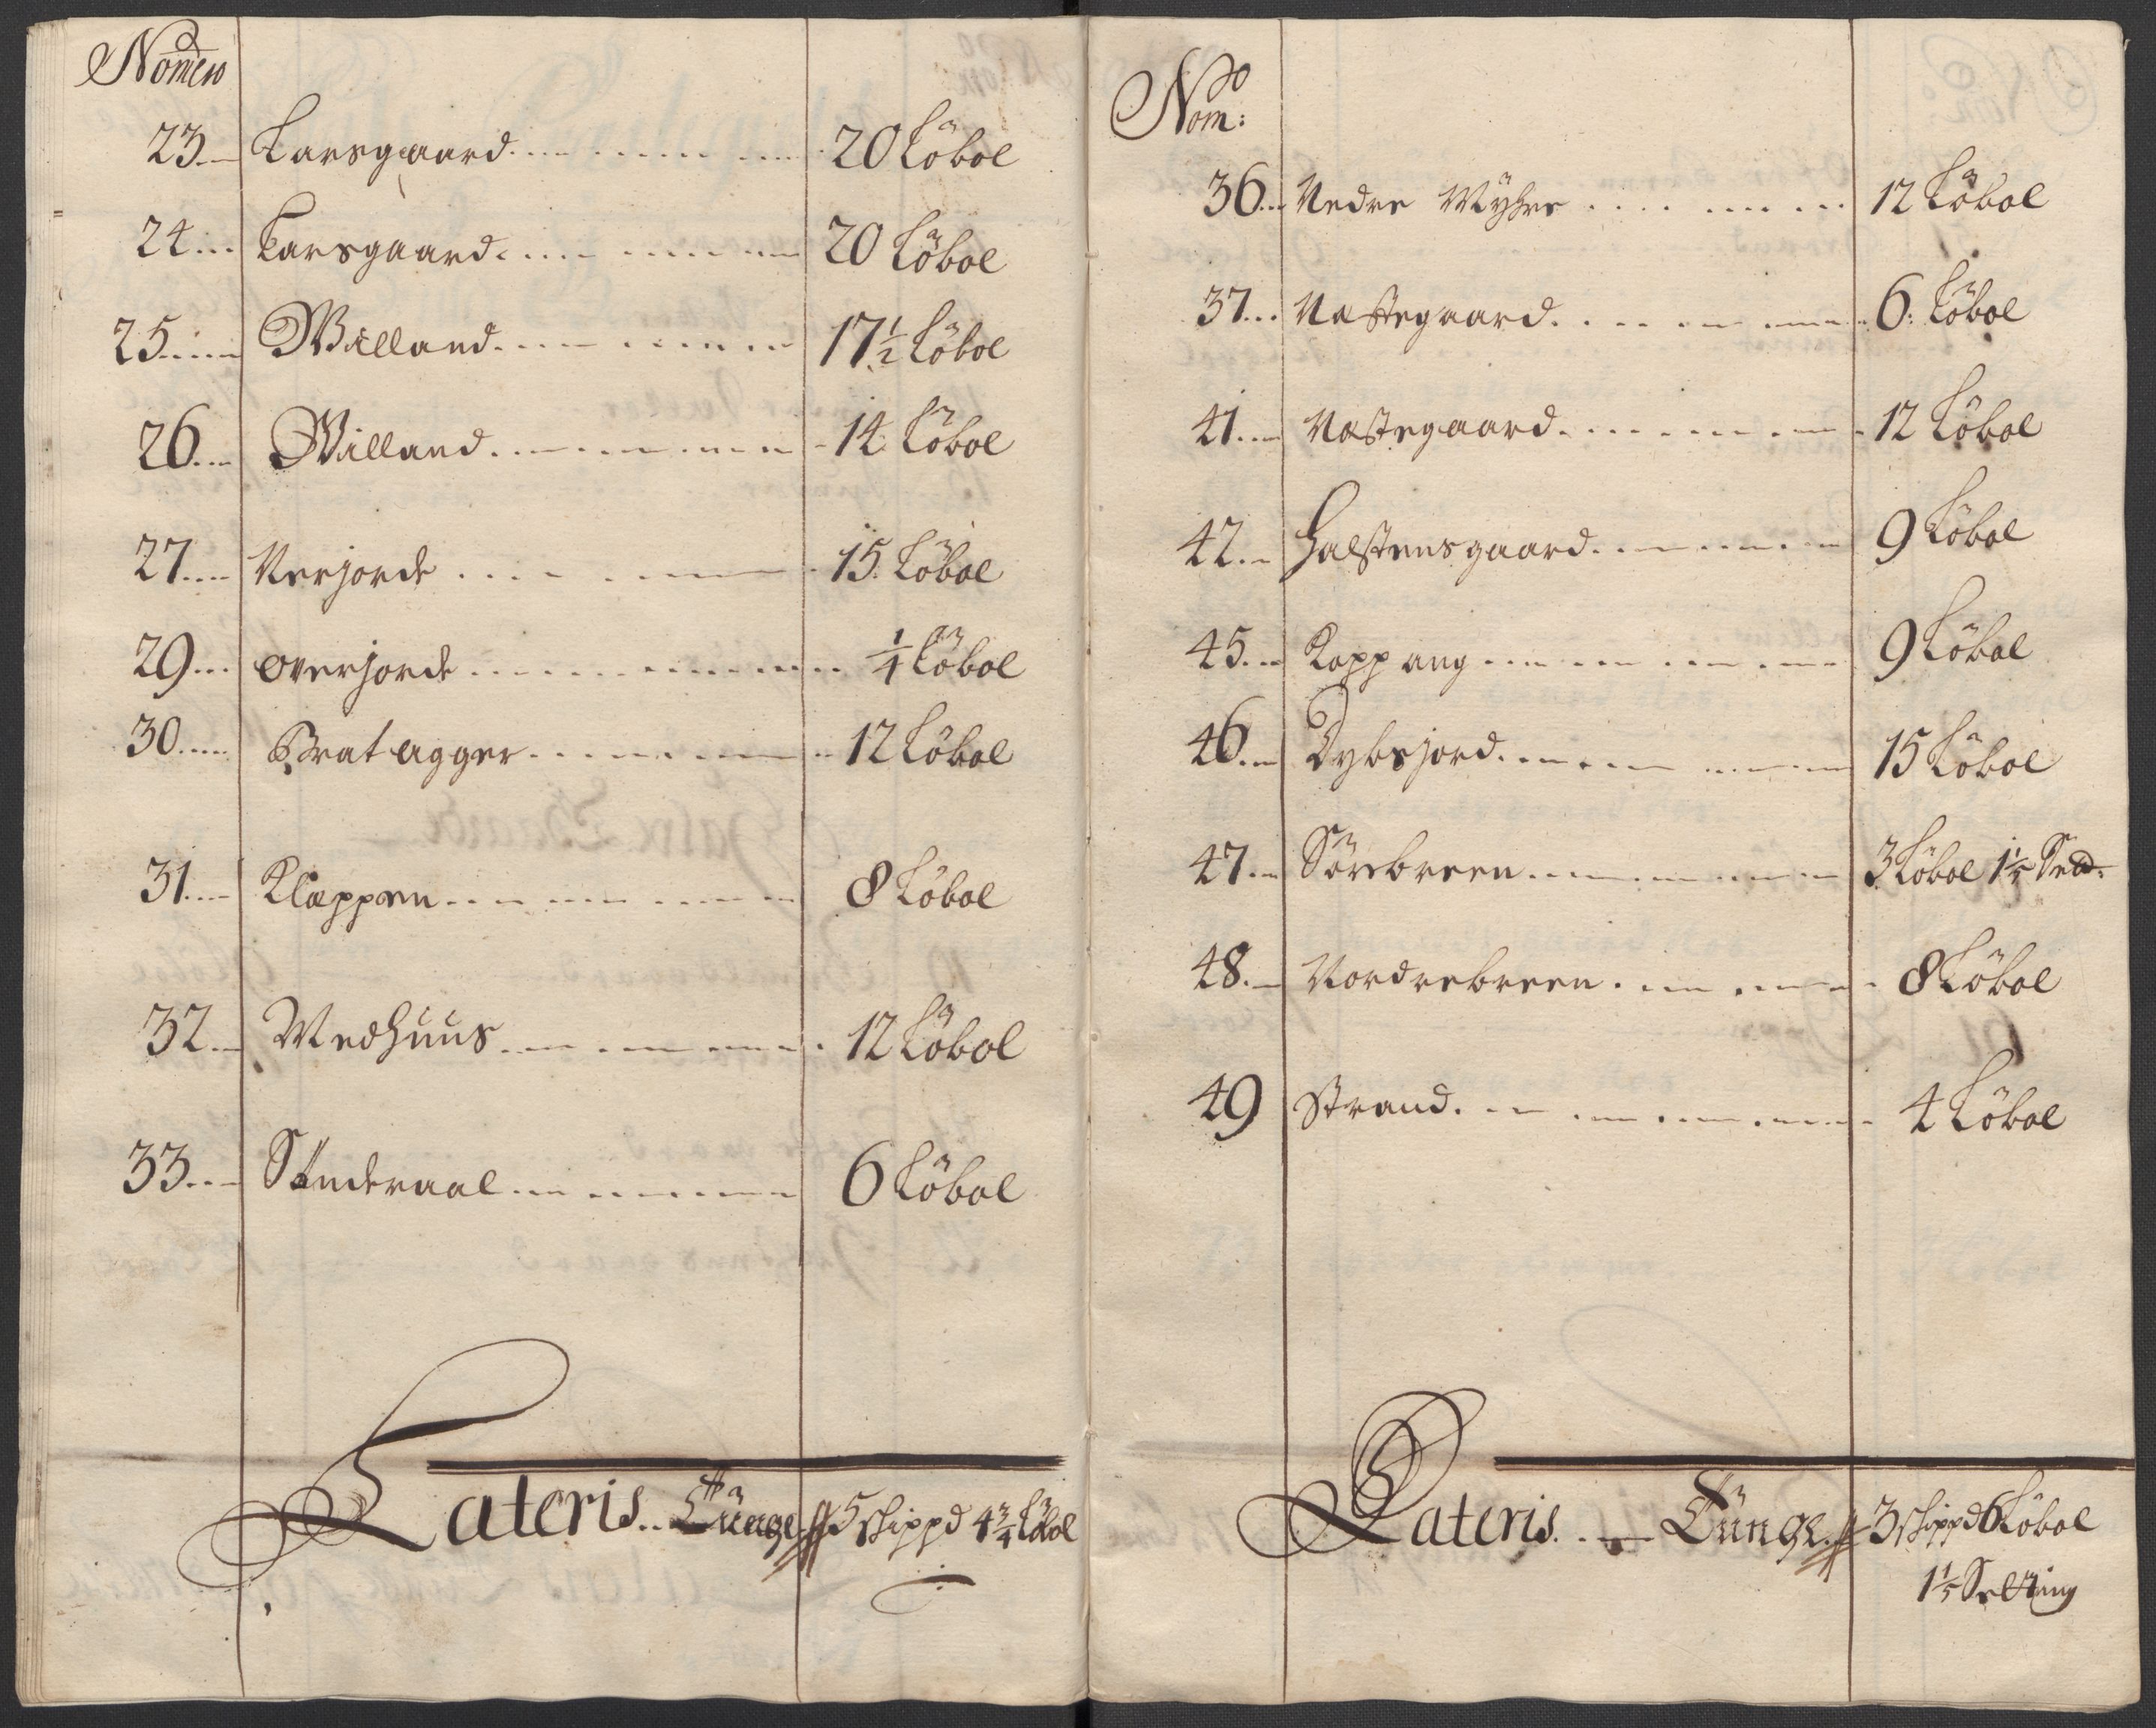 Nomero
23 Larsgaard 20 Löbol
24 Larsgaard 20 Löbol
25 Willand 17 1/2 Löbol
26 Willand 14 Löbol
27 Nerjorde 15 Löbol
29 overjorde 1/4 Löbol
30 Bratagger 12 Löbol
31 Klæppen 8 Löbol
32 Medhuus 12 Löbol
33 Sunderaal 6 Löbol
Lateris Tünge 5 skippd 4 3/4 Löbol
No
Nom:
36 Nedre Myhre 12 Löbol
37 Nastegaard 6: Löbol
41 Nastegaard 12 Löbol
42 Halstensgaard 9 Löbol
45 Koppang 9 Löbol
46 Dybsjord 15 Löbol
47 Sörebreen 3 Löbol 1 1/5 Sed:
48 Nordrebreen 8 Löbol
49 Strand 4 Löbol
Lateris Tünge 3 skippd 6 Löbol
1 1/5 Setting